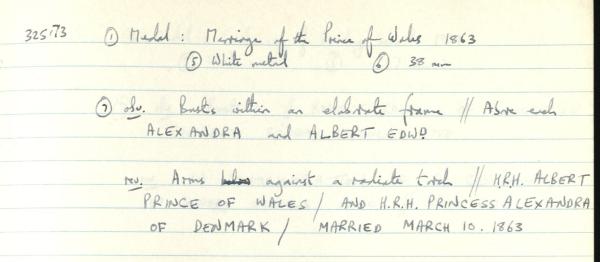 325'73 ① Medal : Marriage of the Prince of Wales 1863
⑤ White metal ⑥ 38 mm
⑦ obv. Busts within an elaborate frame // Above each
ALEXANDRA and ALBERT EDWD
rev. Arms against a radiate torch // H.R.H. ALBERT
PRINCE OF WALES / AND H.R.H. PRINCESS ALEXANDRA
OF DENMARK / MARRIED MARCH 10. 1863